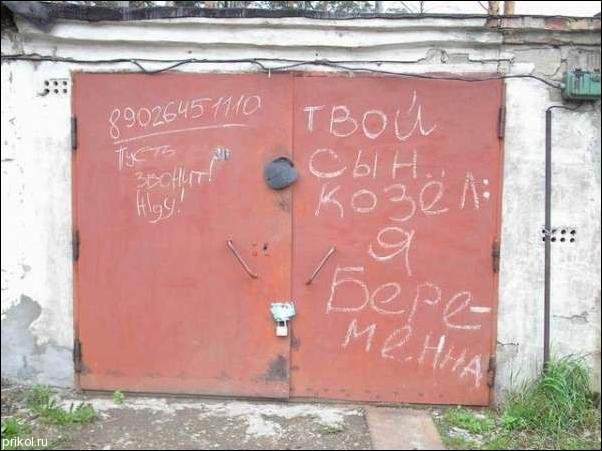 89026451110
Пусть
звонит!
Жду!
твой
сын..
козёл:
я
Бере-
менна
prikol.ru